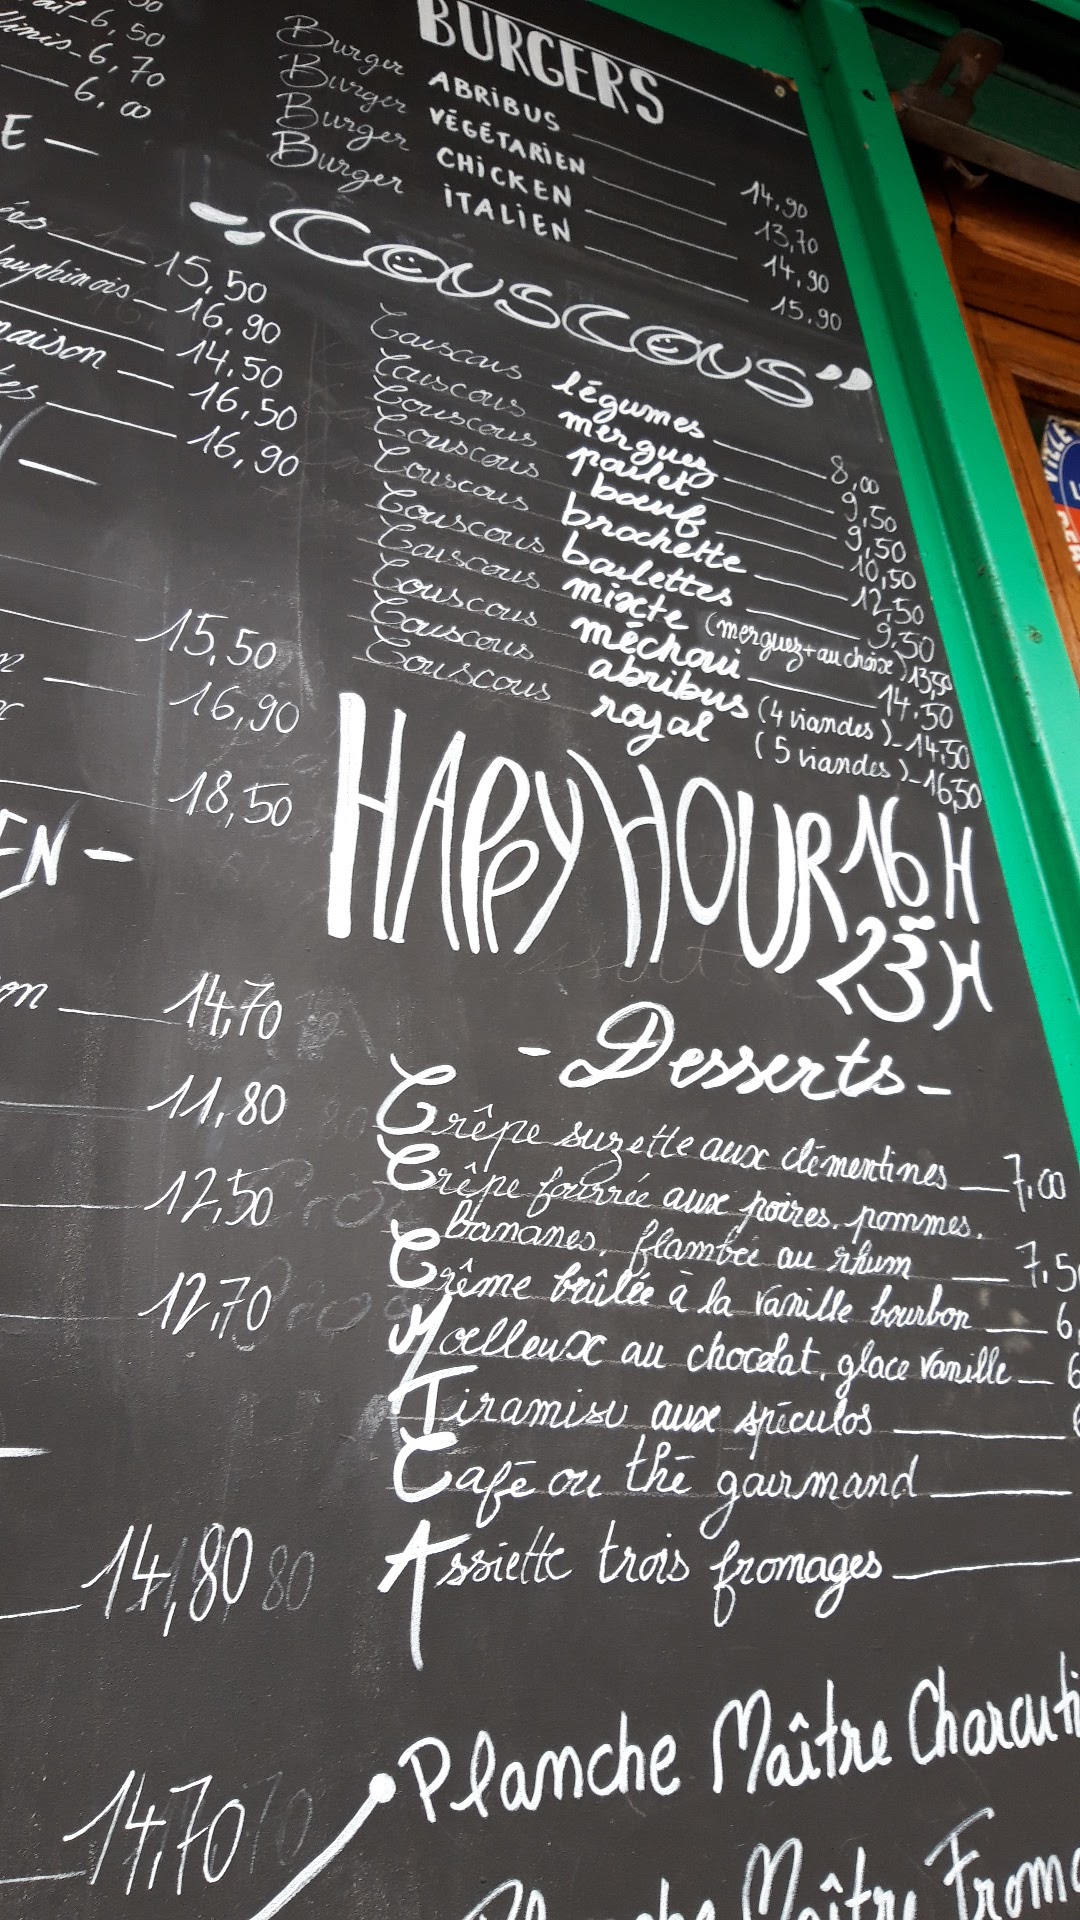 6,50
6,70
6,00
E —
15,50
dauphinois — 16,90
14,50
maison — 16,50
16,90
15,50
16,90
18,50
EN -
on — 14,70
11,80
12,50
12,70
14,80
14,70
BURGERS
Burger ABRIBUS — 14,90
Burger VÉGÉTARIEN — 13,70
Burger CHICKEN — 14,90
Burger ITALIEN — 15,90
COUSCOUS
Couscous légumes — 8,00
Couscous merguez — 9,50
Couscous poulet — 9,50
Couscous bœuf — 10,50
Couscous brochette — 12,50
Couscous boulettes — 9,50
Couscous mixte (merguez + au choix) 13,50
Couscous méchoui — 14,50
Couscous abribus (4 viandes) — 14,50
Couscous royal (5 viandes) — 16,50
HAPPY HOUR 16H
23H
- Desserts -
Crêpe suzette aux clémentines — 7,00
Crêpe fourrée aux poires, pommes,
bananes, flambée au rhum — 7,5
Crême brûlée à la vanille bourbon — 6,
Moelleux au chocolat, glace vanille — 6
Tiramisu aux spéculos —
Café ou thé gourmand —
Assiette trois fromages —
Planche Maître Charcuti
Planche Maître Froma
VIZZE